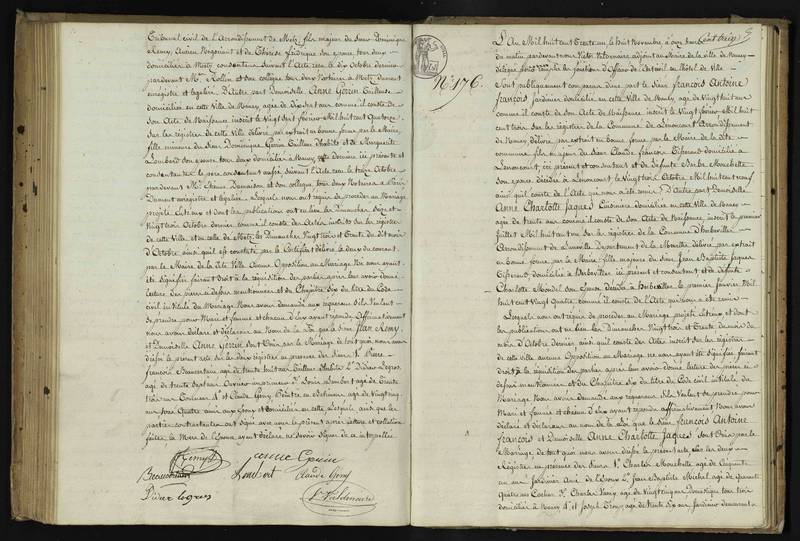 Tribunal civil de l'Arrondissement de Metz, fils majeur du Sieur Dominique
Remy, Ancien Negociant et de Thérèse son épouse tous deux
domiciliés à Metz consentants suivant l'Acte reçu le dix Octobre dernier
pardevant Me Rollin et son collègue, tous deux Notaires à Metz dument
enregistré et légalisé. D'autre part Demoiselle Anne Gérin Tailleuse
domiciliée en cette Ville de Nancy, âgée de Dix Sept ans comme il conste de
son Acte de Naissance inscrit le Vingt Février Mil huit cent Quatorze
Sur les registres de cette Ville délivré par extrait en bonne forme par le Maire,
fille mineure du Sieur Dominique Gérin Tailleur d'habits et de Marguerite
Lombard son épouse tous deux domiciliés à Nancy dernière ici présente et
consentante le père consentant aussi suivant l'Acte reçu le treize Octobre
pardevant Me et son collègue, tous deux Notaires à Metz
Dument enregistré et légalisé. Lesquels nous ont requis de procéder au Mariage
projeté entre eux et dont les publications ont eu lieu les Dimanches Seize et
Vingt trois Octobre dernier comme il conste des Actes inscrits sur les registres
de cette Ville et en celle de Metz les Dimanches Vingt trois et Trente du dit mois
d'Octobre ainsi qu'il est constaté par le Certificat délivré le deux du courant
par le Maire de la dite Ville. Aucune Opposition au Mariage ne nous ayant
été signifiée faisant droit à la réquisition des parties après leur avoir donné
lecture des pièces ci dessus mentionnées et du Chapitre Six du titre du Code
civil intitulé du Mariage Nous avons demandé aux requérans s'ils Veulent
se prendre pour Mari et femme et chacun d'eux ayant répondu Affirmativement
nous avons déclaré et déclarons au Nom de la Loi que le Sieur Jean Remy
et Demoiselle Anne Gérin Sont Unis par le Mariage de tout quoi nous avons
dressé le présent acte sur les deux registres en présence des Sieurs 1° Pierre
François Beaucertain agé de trente huit ans Tailleur d'habits 2° Didier Legros
agé de trente Sept ans 3° Louis Lombart agé de Trente
trois ans et Claude Gény Peintre en Bâtimens agé de Vingt cinq
ans tous Quatre amis aux époux et domiciliés en cette Ville lesquels ainsi que les
parties contractantes ont signé avec nous le présent après lecture et collation
faites, la Mère de l'épouse ayant déclaré ne Savoir Signer de ce interpellée
Remy anne Gerin
Lombart Claude Geny
Didier legros
Cent treize
N° 176.
L'An Mil huit cent Trente un, le huit Novembre, à onze heures
du matin pardevant nous Victor Valdenaire, adjoint au Maire de la ville de Nancy
délégué pour remplir les fonctions d'officier de l'état civil en l'hôtel de Ville
Sont publiquement comparus d'une part le Sieur François Antoine
François, jardinier domicilié en cette Ville de Nancy agé de Vingt huit ans
comme il conste de son Acte de Naissance inscrit le Vingt février Mil huit
cent trois Sur les registres de la Commune de Lenoncourt Arrondissement
de Nancy, délivré par extrait en bonne forme par le Maire de la dite
commune fils majeur du Sieur Claude François Tisserand domicilié à
Lenoncourt, ici présent et consentant et de Defunte Barbe Mouchette
Son épouse décédée à Lenoncourt le Vingt trois Octobre Mil huit cent neuf
ainsi qu'il conste de l'Acte qui nous a été remis. D'Autre part Demoiselle
Anne Charlotte Jaques Cuisinière domiciliée en cette Ville de Nancy
agée de trente ans comme il conste de son Acte de Naissance, inscrit le premier
juillet Mil huit cent un Sur les registres de la Commune d'herbeviller
Arrondissement de Lunéville Département de la Meurthe délivré par extrait
en bonne forme par le Maire fille majeure du Sieur Jean Baptiste Jaques
Tisserand, domicilié à Herbeviller ici présent et consentant et de Defunte
Charlotte Mondel son épouse Décédée à Herbeviller le premier janvier Mil
huit cent Vingt Quatre comme il conste de l'Acte qui nous a été remis
Lesquels nous ont requis de procéder au Mariage projeté entre eux et dont
les publications ont eu lieu les Dimanches Vingt trois et Trente du mois du
mois d'Octobre dernier, ainsi qu'il conste des Actes inscrits sur les registres
de cette ville aucune Opposition au Mariage ne nous ayant été signifiée, faisant
droit à la réquisition des parties après leur avoir donné lecture des pièces ci
dessus mentionnées et du Chapitre Six du titre du Code civil intitulé du
Mariage Nous avons demandé aux requérans S'ils Veulent se prendre pour
Mari et femme et chacun d'eux ayant répondu affirmativement, Nous avons
déclaré et déclarons au nom de la Loi que le Sieur François Antoine
François et Demoiselle Anne Charlotte Jaques Sont Unis par le
Mariage de tout quoi nous avons dressé le présent acte sur les deux
Registres en présence des Sieurs 1° Charles Mouchette agé de Cinquante
un ans Jardinier 2° Jean Baptiste Michel agé de Quarante
Quatre ans Cocher 3° Charles Remy agé de Vingt cinq ans Domestique tous trois
domiciliés à Nancy 4° et Joseph agé de trente six ans Jardinier demeurant à